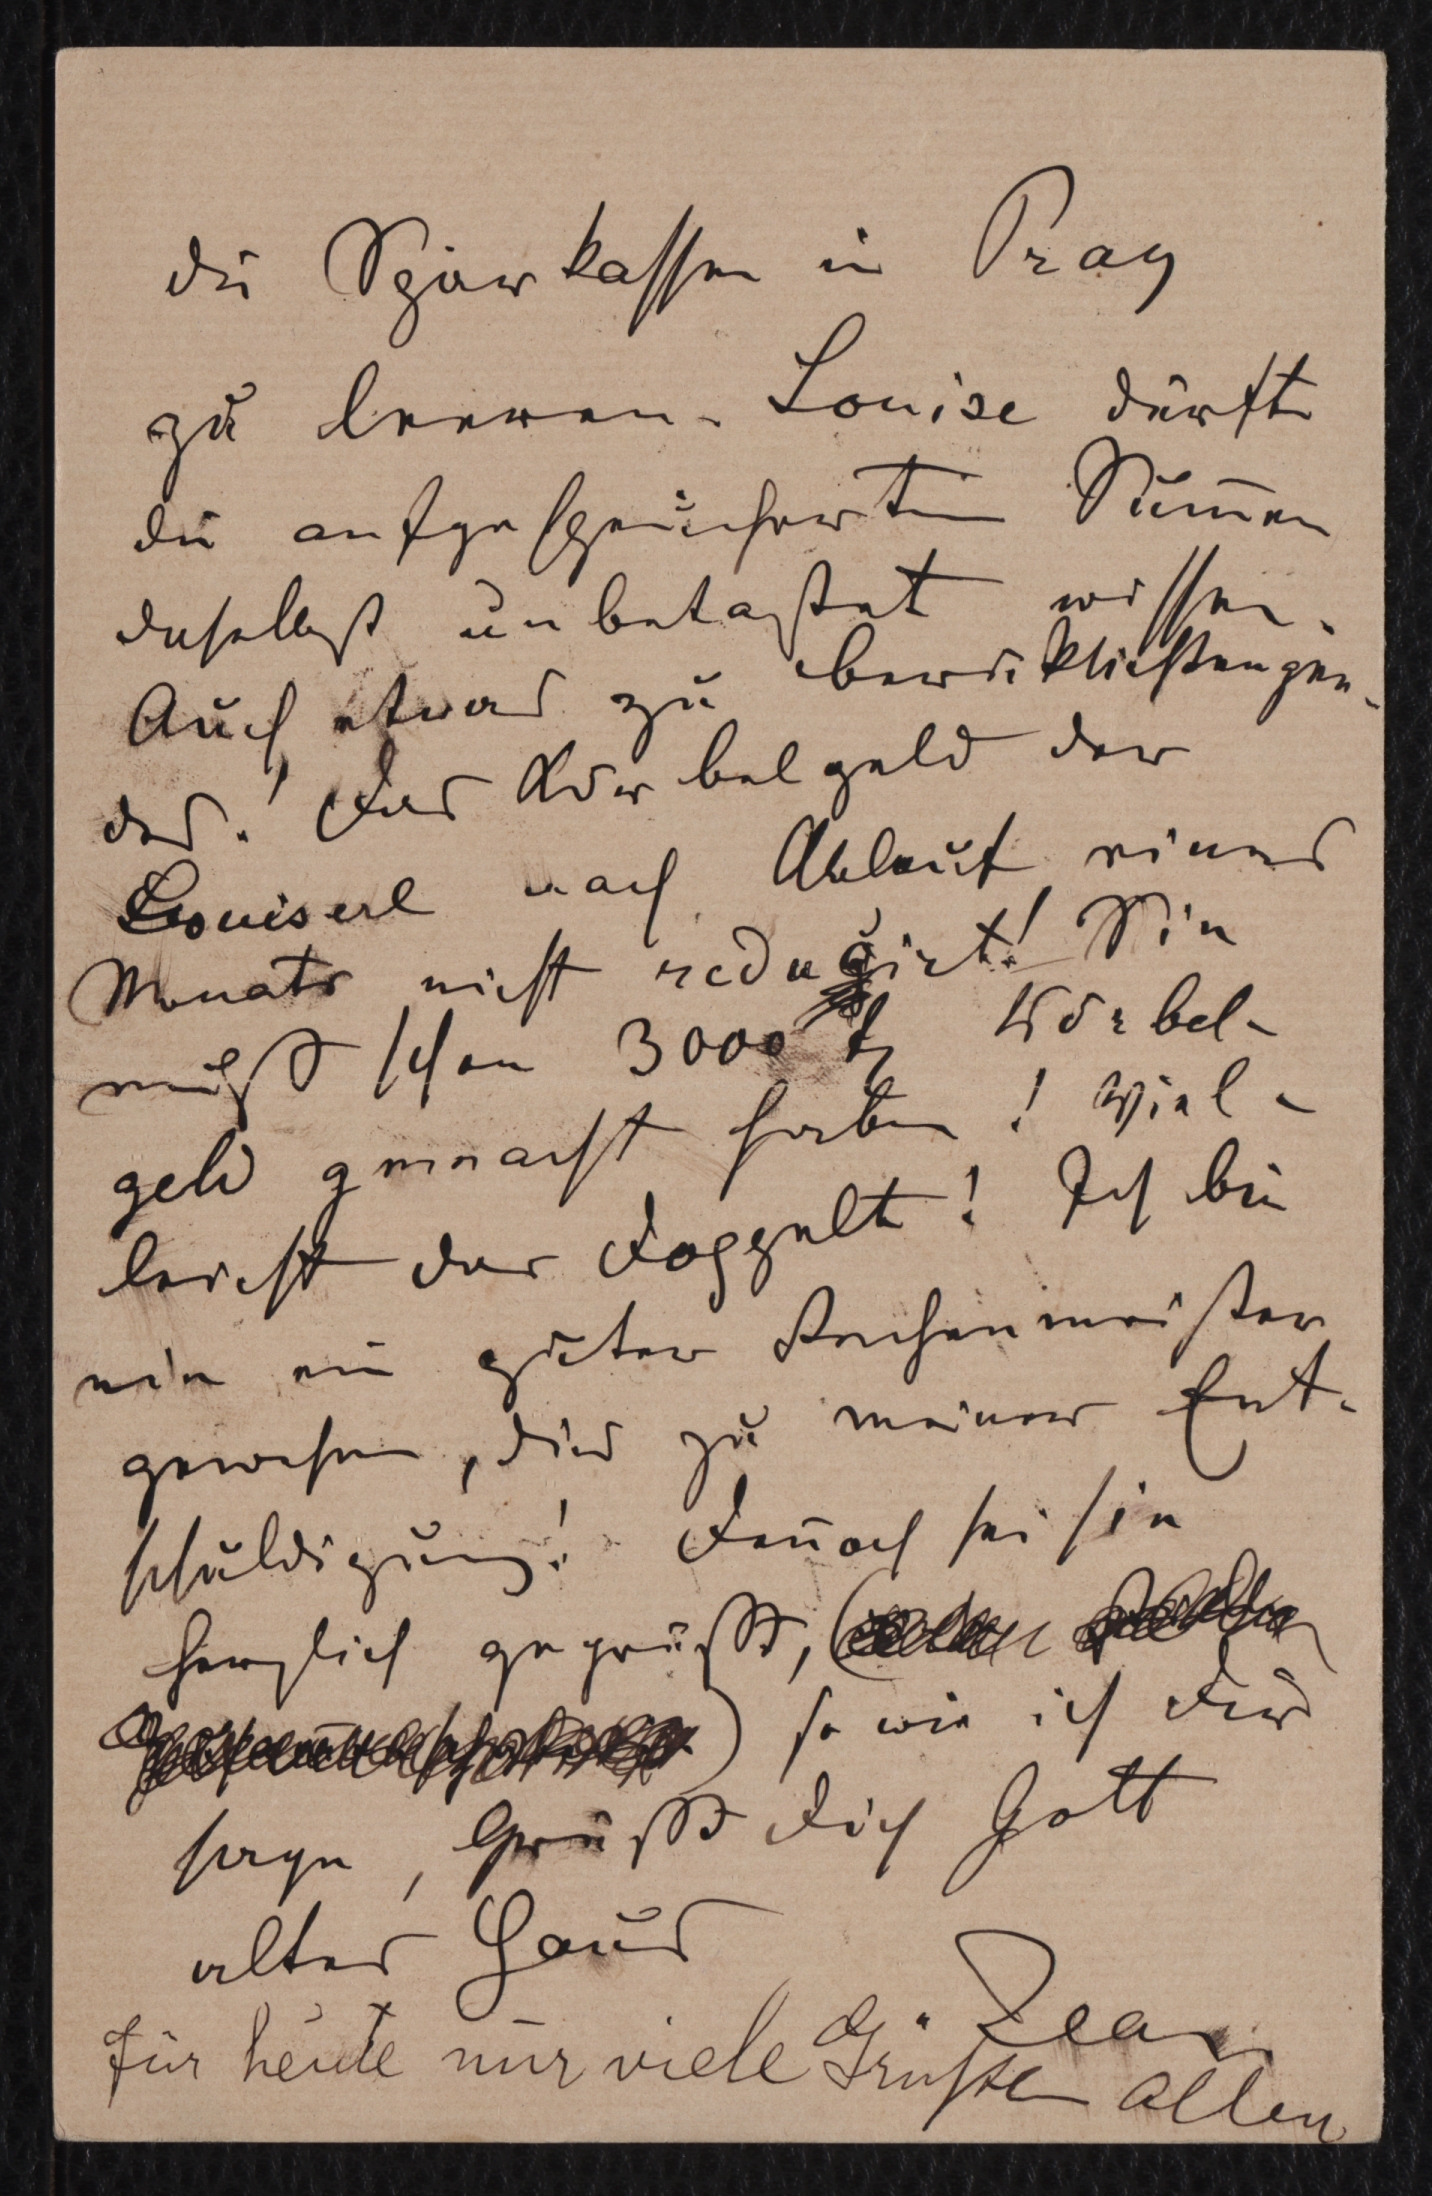 die Sparkassen in Prag
zu leeren. Louise dürfte
die aufgespeicherten Sum̅en
daselbst unbetastet wissen.
Auch etwas zu berücksichtigen-
des! Das Körbelgeld der
Louiserl nach Ablauf eines
Monats nicht reduzirt! Sie
muß schon 3000 f Körbel-
geld gemacht haben! Viel-
leicht das Doppelte! Ich bin
nie ein guter Rechenmeister
gewesen, dies zu meiner Ent-
schuldigung! Den̅och sei sie
herzlich gegrüßt, (
) so wie ich Dir
sage, Grüß Dich Gott
altes Haus
Jean
für heute nur viele Grüsse Allen